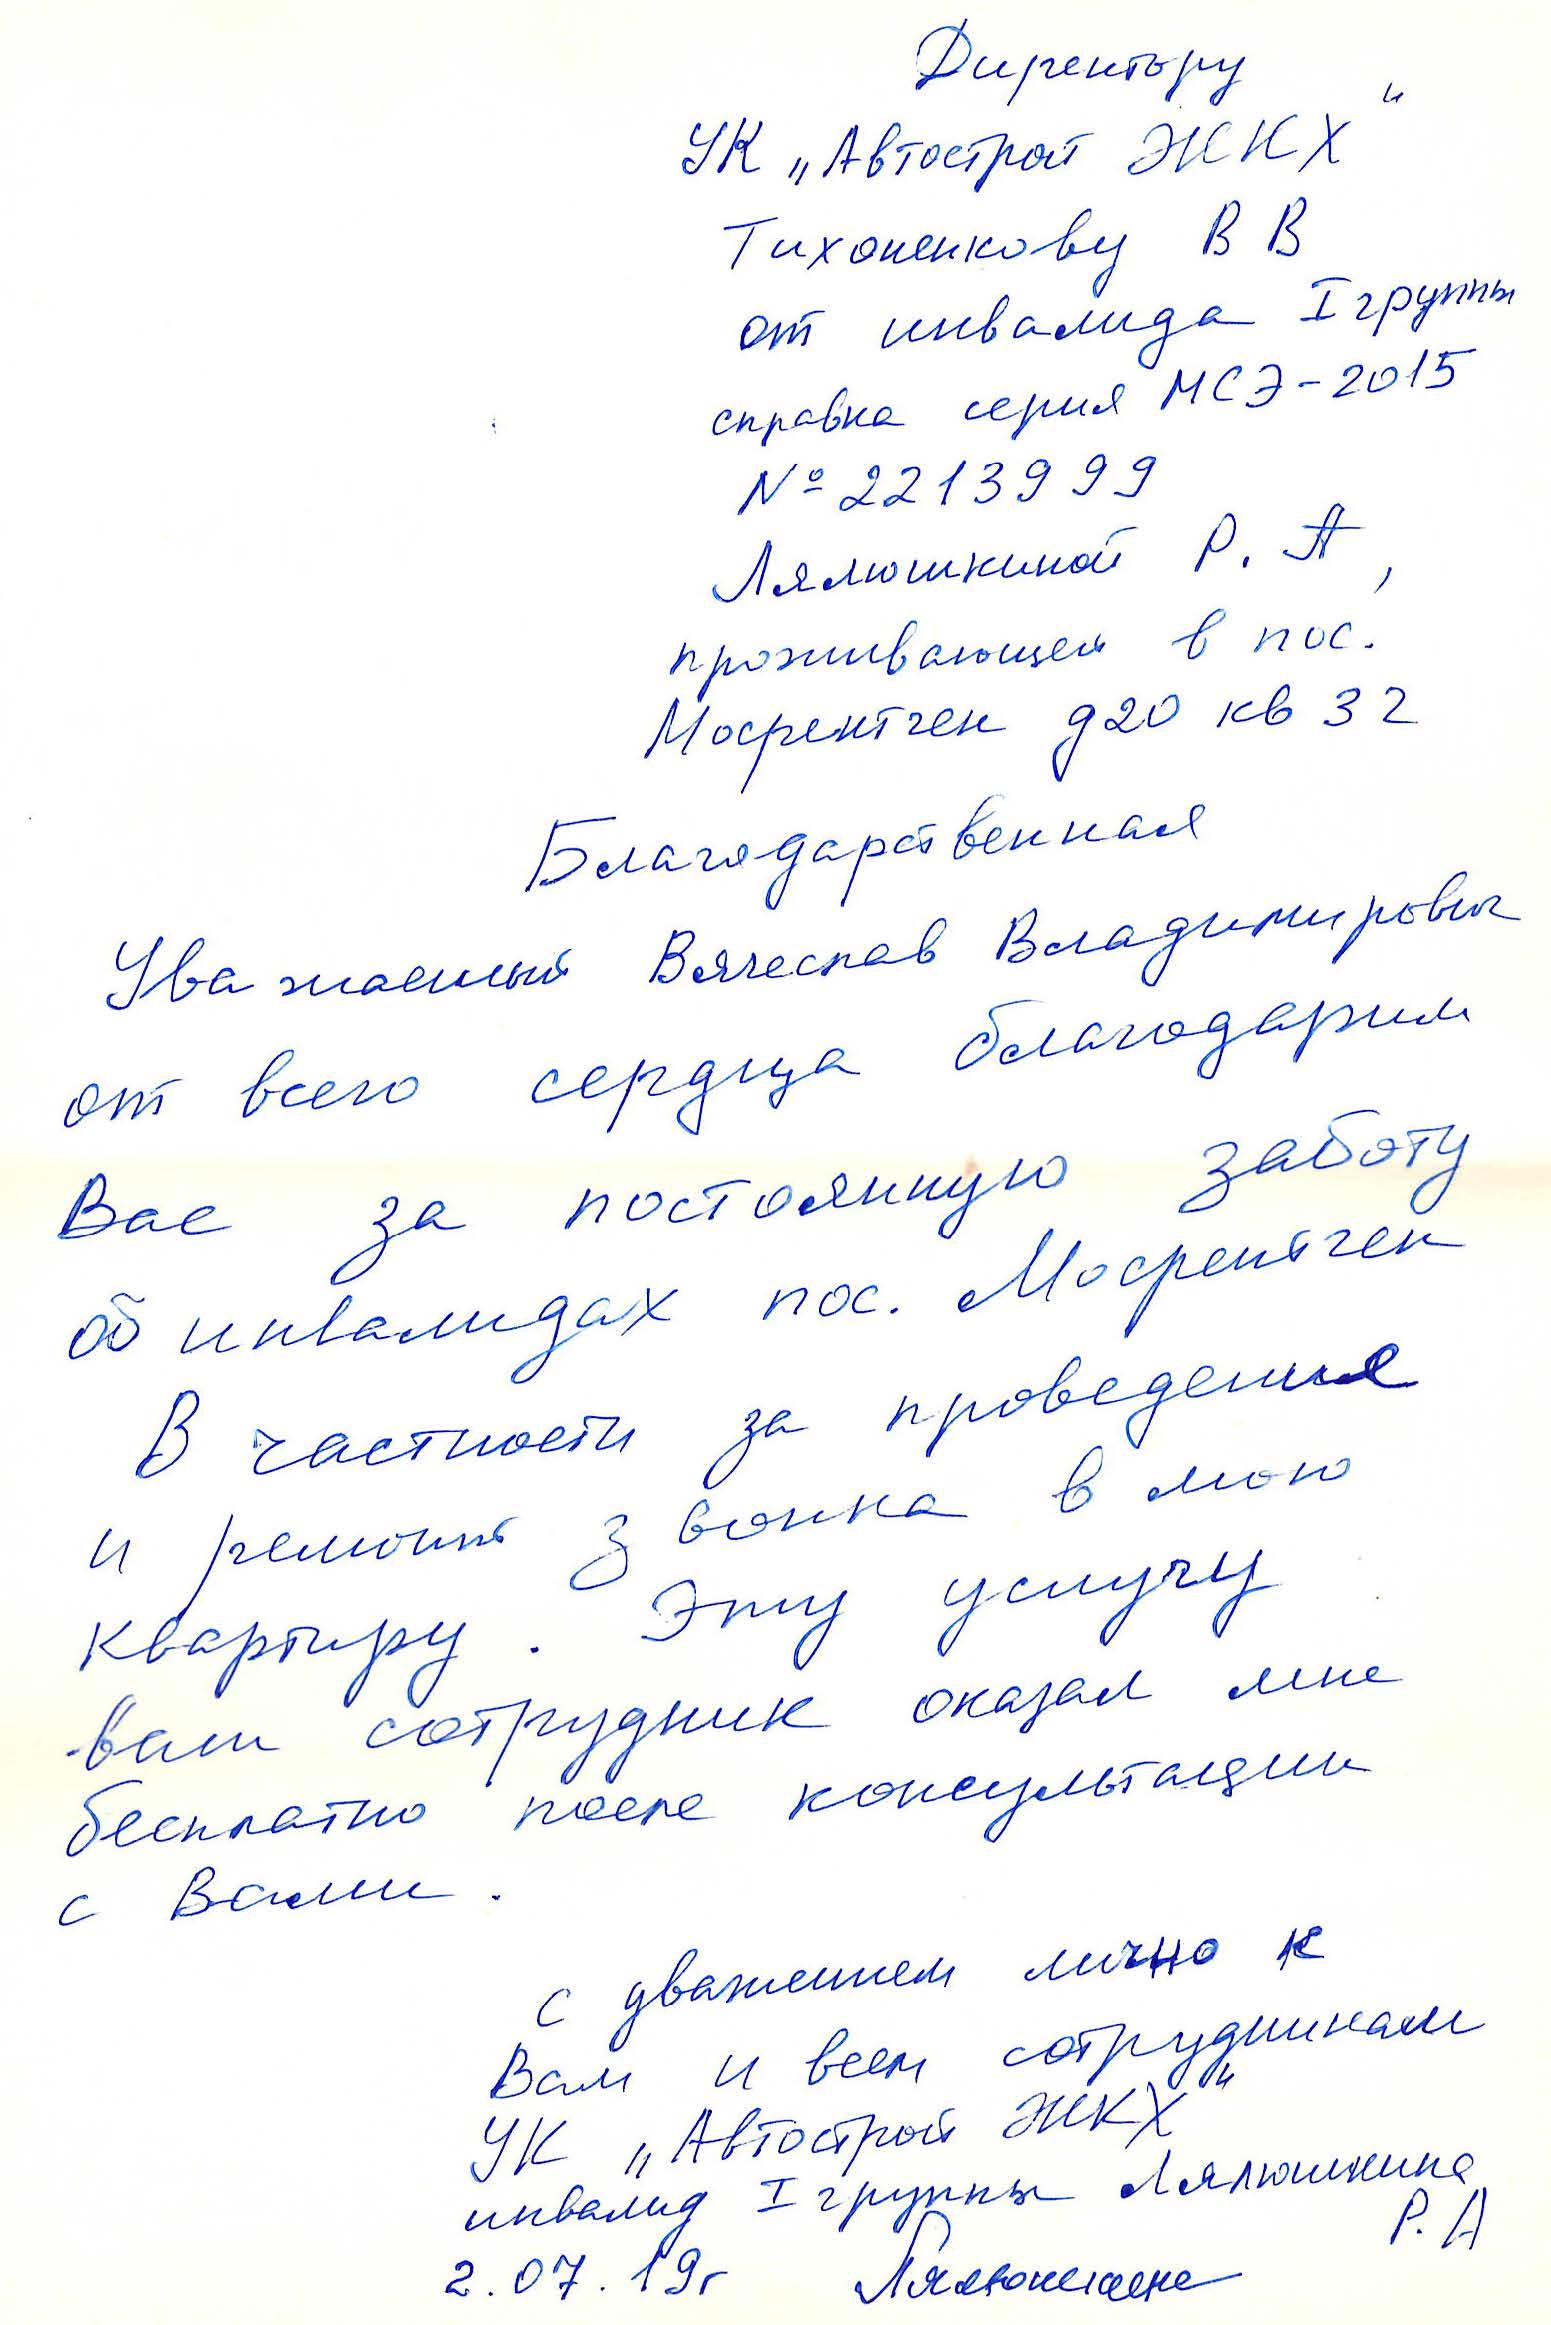 Директору
УК „Автострой ЖКХ"
Тихоненкову В В
от инвалида I группы
справка серия МСЭ-2015
№ 2213999
Лялюшкиной Р. А,
проживающей в пос.
Мосрентген д20 кв 32
Благодарственная
Уважаемый Вячеслав Владимирович
от всего сердца благодарим
Вас за постоянную заботу
об инвалидах пос. Мосрентген
В частности за проведение
и ремонт звонка в мою
квартиру. Эту услугу
ваш сотрудник оказал мне
бесплатно после консультации
с Вами.
с уважением лично к
Вам и всем сотрудникам
УК „Автострой ЖКХ"
инвалид I группы Лялюшкина
Р. А
2.07.19г Лялюшкина